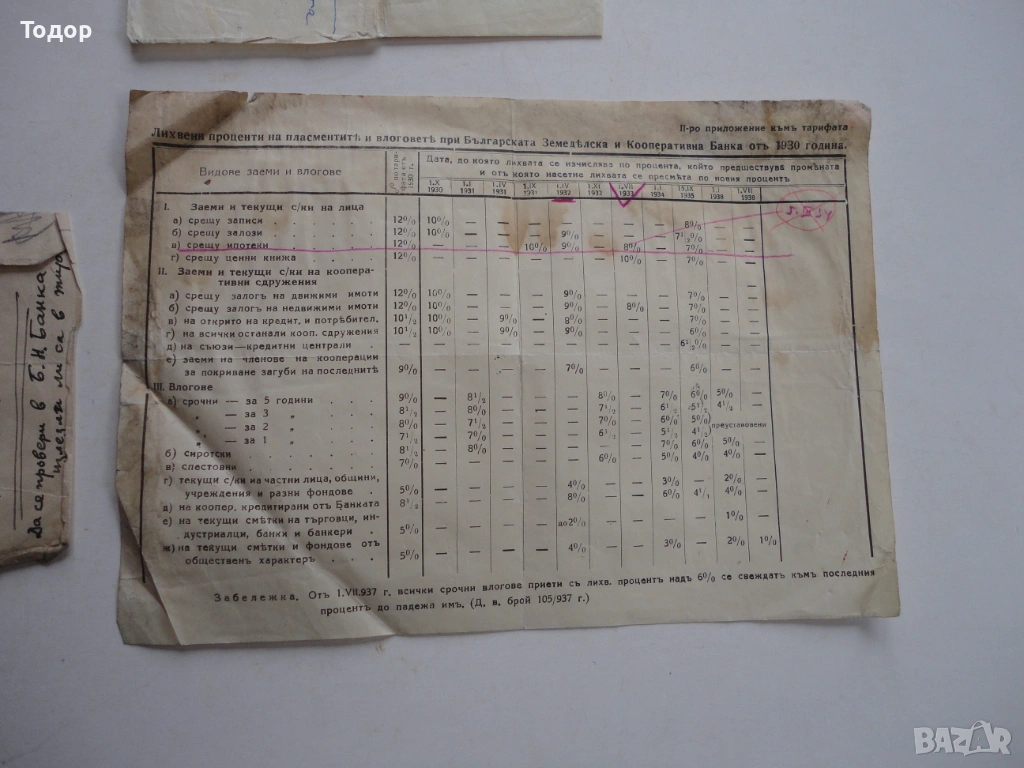 Тодор
II-ро приложение къмъ тарифата
Лихвени проценти на пласментитѣ и влоговетѣ при Българската Земедѣлска и Кооперативна Банка отъ 1930 година.
Видове заеми и влогове
Дата, до която лихвата се изчислява по процента, който предшествува промѣната
и отъ която насетне лихвата се пресмѣта по новия процентъ
1.X 1930 1.I 1931 1.IV 1931 1.IX 1931 1.IV 1932 1.XI 1931 1.VII 1933 1.I 1934 15.IX 1935 1.I 1938 1.VII 1938
I. Заеми и текущи с/ки на лица
а) срещу записи . . . . . 12% 10% — — — — — — — 8% — —
б) срещу залози . . . . . 12% 10% — — — 9% — — — 7½% — —
в) срещу ипотеки . . . . 12% — — — 10% 9% — 8% — 7% — —
г) срещу ценни книжа . . . 12% — — — — — — 10% — 7% — —
II. Заеми и текущи с/ки на коопера-
тивни сдружения
а) срещу залогъ на движими имоти 12% 10% — — — 9% — — — 7% — —
б) срещу залогъ на недвижими имоти 12% 10% — — — 9% — 8% — 7% — —
в) на открито на кредит. и потрѣбител. 10½ 10% — 9% — 8% — — — 6% — —
г) на всички останали кооп. сдружения 10½ 10% — 9% — 9% — — — 6% — —
д) на съюзи—кредитни централи . — — — — — — — — — 6½% — —
е) заеми на членове на кооперации
за покриване загуби на последнитѣ 9% — — — — 7% — — — 6% — —
III. Влогове
а) срочни — за 5 години . . . 9% — 8½ — — — 8% — 7% 6% 5% —
„ — за 3 „ . . . 8½ — 8% — — — 7½ — 6½ 5½ 4½ —
„ — за 2 „ . . . 8% — 7½ — — — 7% — 6% 5% преустановени
„ — за 1 „ . . . 7½ — 7% — — — 6½ — 5½ 4½
б) сиротски . . . . 8½ — 8% — — — — — 7% 6% 5% —
в) спестовни . . . . 7% — — — — — 6% — 5% 4% 4% —
г) текущи с/ки на частни лица, общини,
учреждения и разни фондове . 5% — — — — 4% — — 3% — 2% —
д) на коопер. кредитирани отъ Банката 8½ — — — — 8% — — 6% 4½ 4% —
е) на текущи смѣтки на търговци, ин-
дустриалци, банки и банкери . 5% — — — — до 2% — — — — 1% —
ж) на текущи смѣтки и фондове отъ
общественъ характеръ . . . 5% — — — — 4% — — 3% — 2% 1%
Забележка. Отъ 1.VII.937 г. всички срочни влогове приети съ лихв. процентъ надъ 6% се свеждатъ къмъ последния
процентъ до падежа имъ. (Д. в. брой 105/937 г.)
Да се провери в Б. Н. Банка
BAZAR